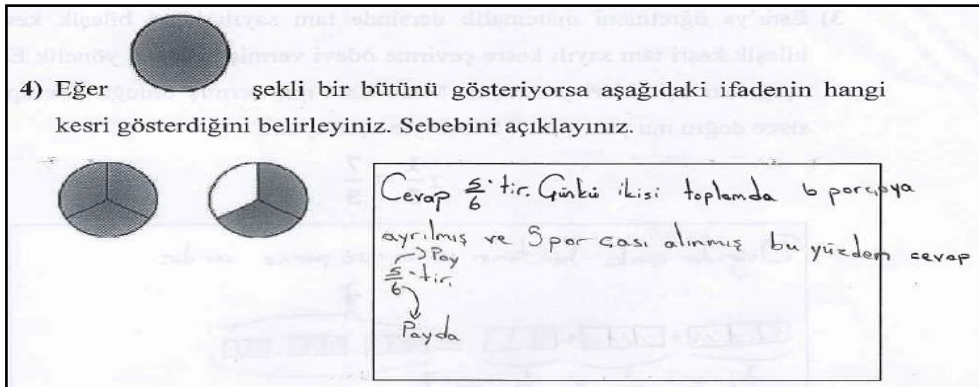 4) Eğer şekli bir bütünü gösteriyorsa aşağıdaki ifadenin hangi
kesri gösterdiğini belirleyiniz. Sebebini açıklayınız.
Cevap 5/6'tir. Günkü ikisi toplamda 6 parçaya
ayrılmış ve 5 parçası alınmış bu yüzden cevap
→ Pay
5/6'tir.
Payda